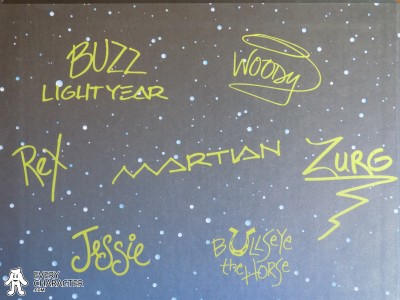 BUZZ
LIGHTYEAR
WOODY
ReX
MARTIAN
ZURG
Jessie
BULLSEYE
the HORSE
EVERY
CHARACTER
.COM